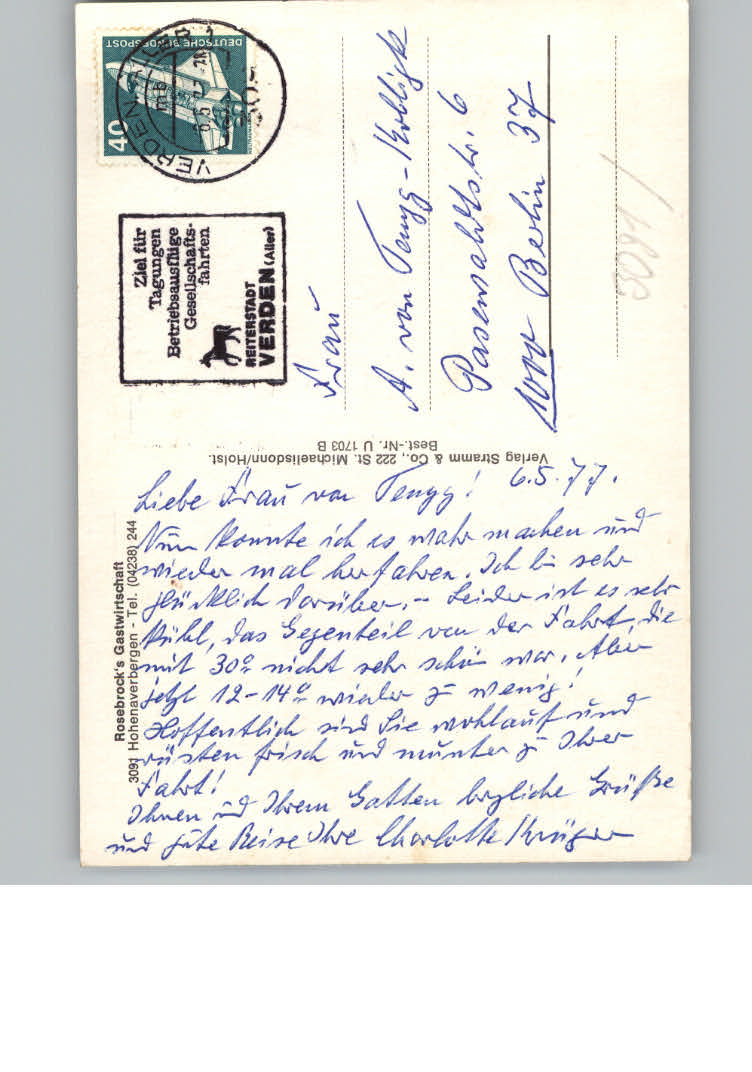 Rosebrock's Gastwirtschaft
3091 Hohenaverbergen - Tel. (04238) 244
Liebe Frau von Tengg! 6.5.77.
Nun konnte ich es wahr machen und
wieder mal herfahren. Ich bin sehr
glücklich darüber. – Leider ist es sehr
kühl, das Gegenteil von der Fahrt, die
mit 30° nicht sehr schön war. Aber
jetzt 12-14° wieder zu wenig!
Hoffentlich sind Sie wohlauf und
rüsten frisch und munter zu Ihrer
Fahrt!
Ihnen und Ihrem Gatten herzliche Grüße
und gute Reise Ihre Charlotte Krüger
Verlag Stramm & Co., 222 St. Michaelisdonn/Holst.
Best.-Nr. U 1703 B
DEUTSCHE BUNDESPOST
40
VERDEN
Ziel für
Tagungen
Betriebsausflüge
Gesellschafts-
fahrten
REITERSTADT
VERDEN (Aller)
Frau
A. von Tengg-
Pasewaldtstr. 6
1000 Berlin 37
3091